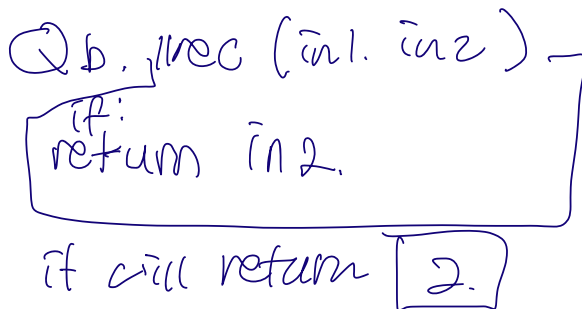 Qb. rec (in1. in2)
if:
return in2.
it will return 2.